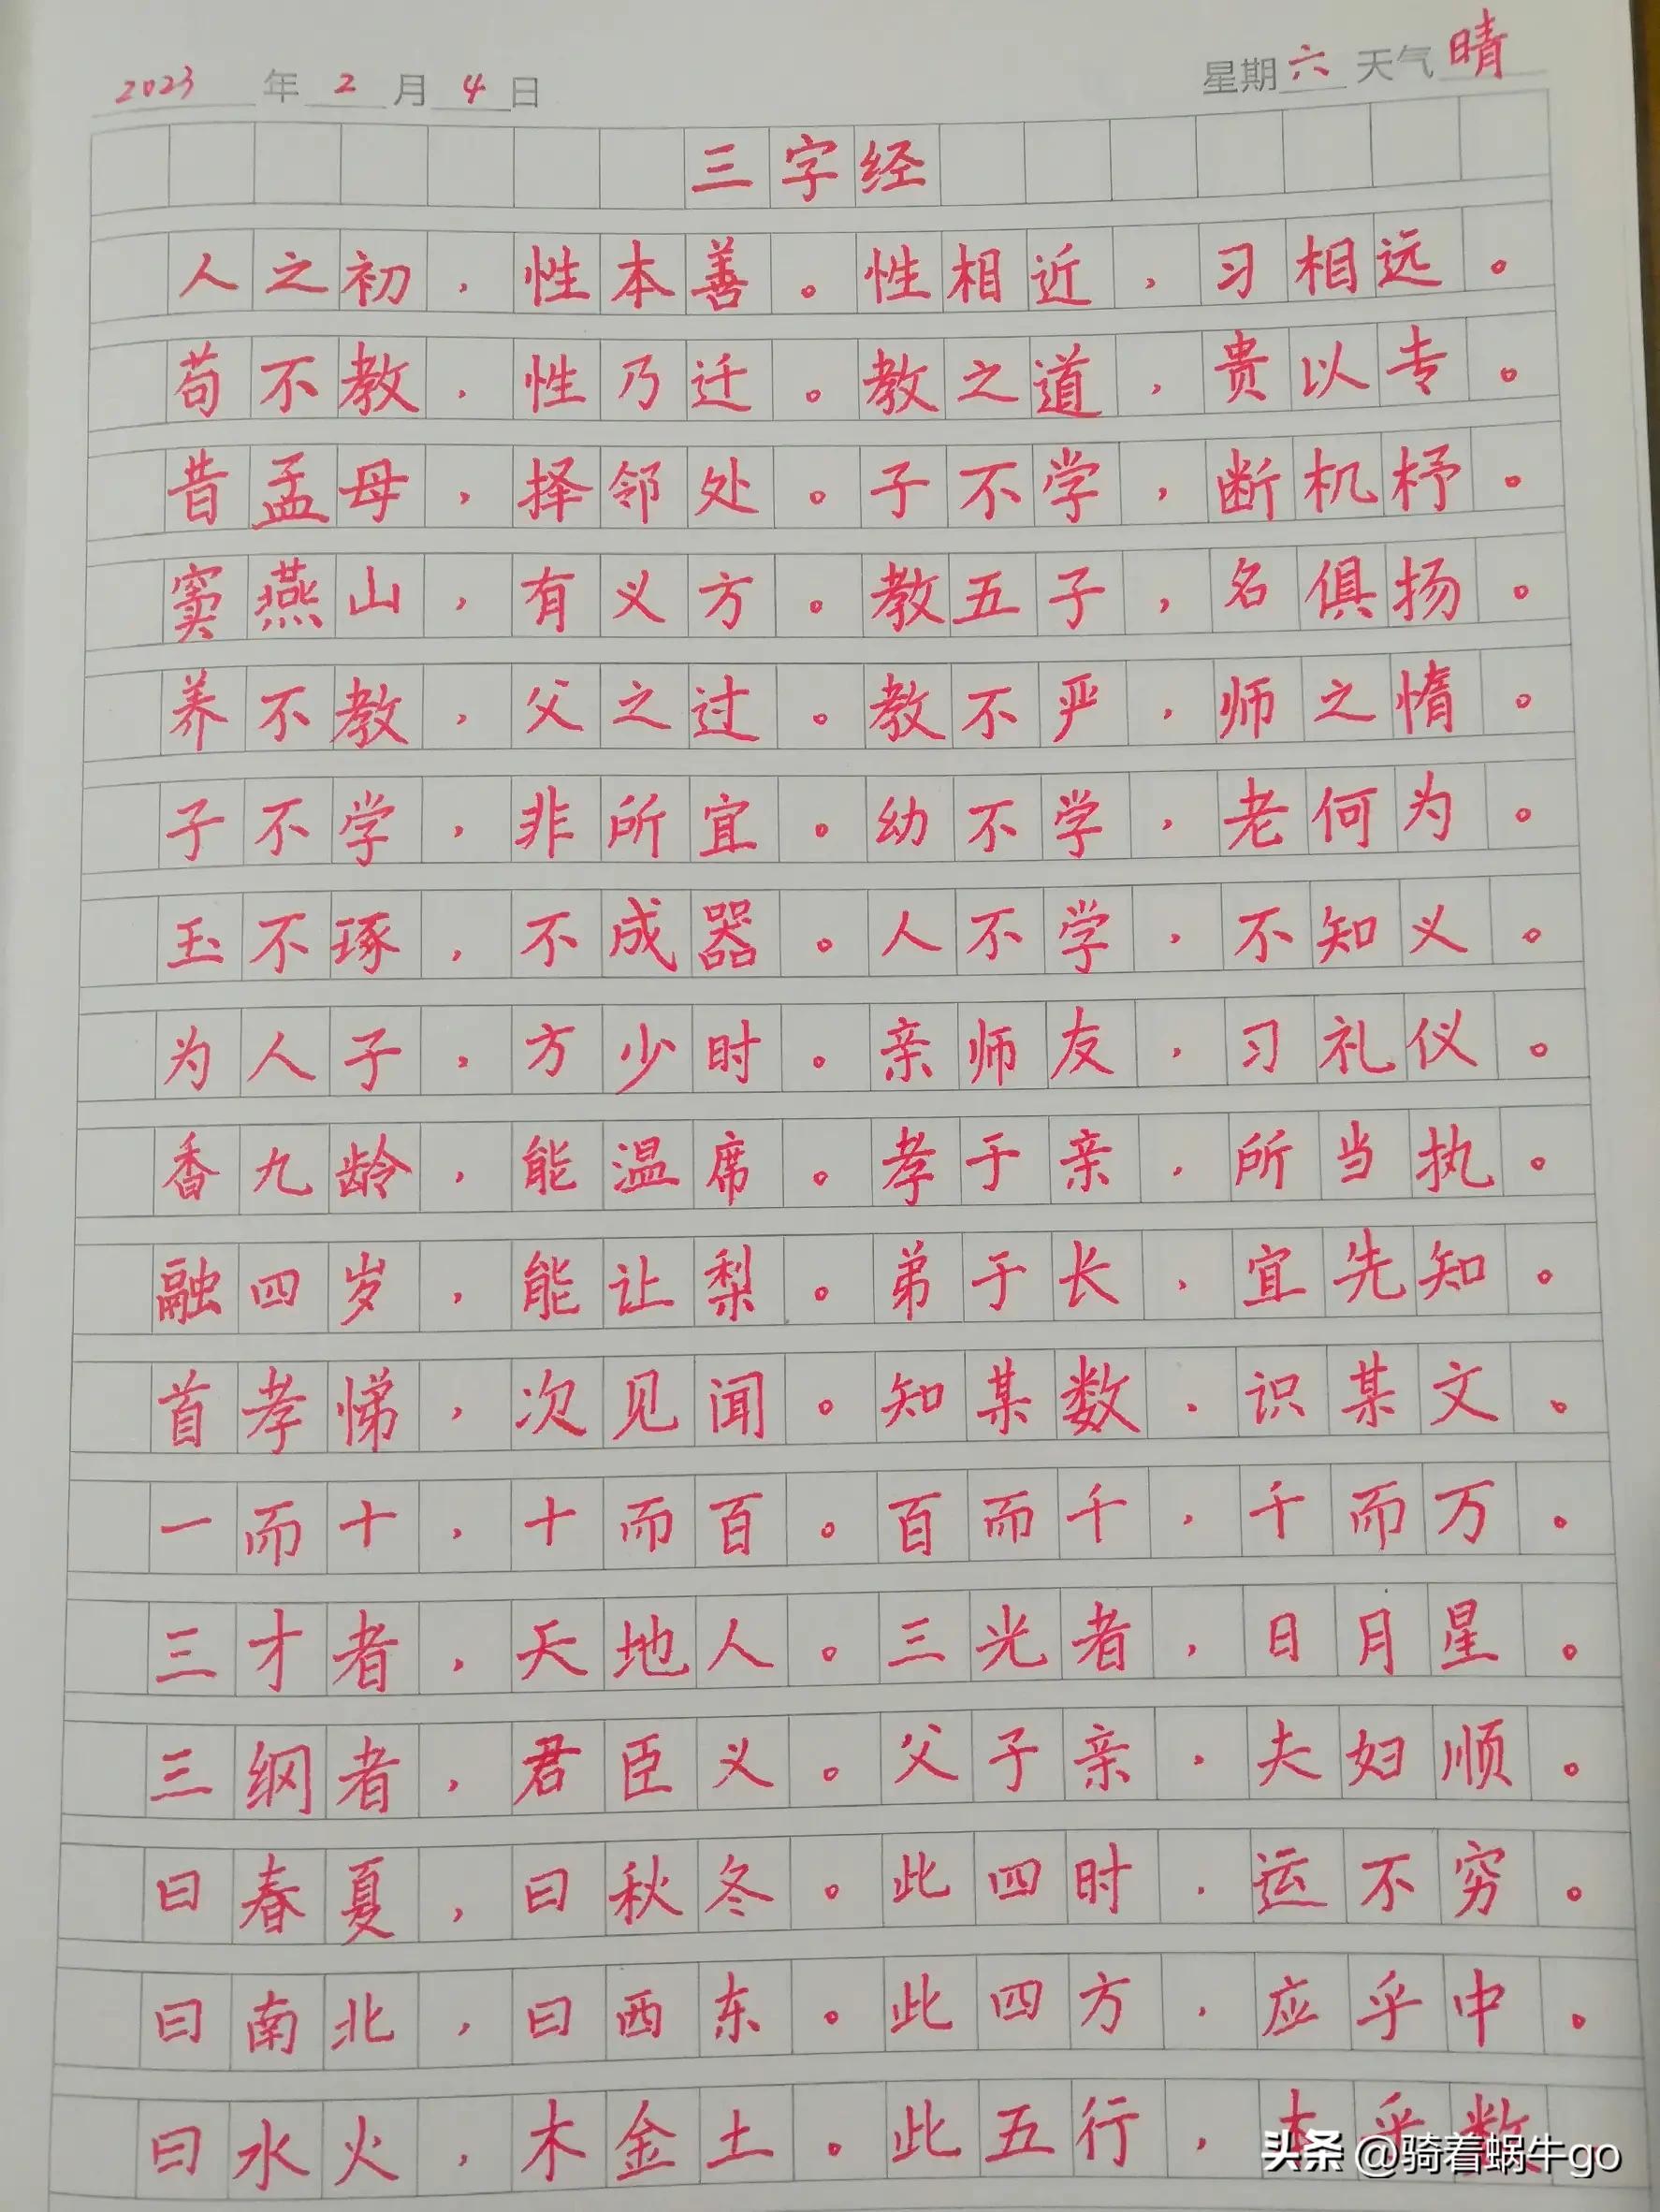 2023年2月4日 星期六 天气晴
三字经
人之初，性本善。性相近，习相远。
苟不教，性乃迁。教之道，贵以专。
昔孟母，择邻处。子不学，断机杼。
窦燕山，有义方。教五子，名俱扬。
养不教，父之过。教不严，师之惰。
子不学，非所宜。幼不学，老何为。
玉不琢，不成器。人不学，不知义。
为人子，方少时。亲师友，习礼仪。
香九龄，能温席。孝于亲，所当执。
融四岁，能让梨。弟于长，宜先知。
首孝悌，次见闻。知某数，识某文。
一而十，十而百。百而千，千而万。
三才者，天地人。三光者，日月星。
三纲者，君臣义。父子亲，夫妇顺。
曰春夏，曰秋冬。此四时，运不穷。
曰南北，曰西东。此四方，应乎中。
曰水火，木金土。此五行，本乎数
头条 @骑着蜗牛go